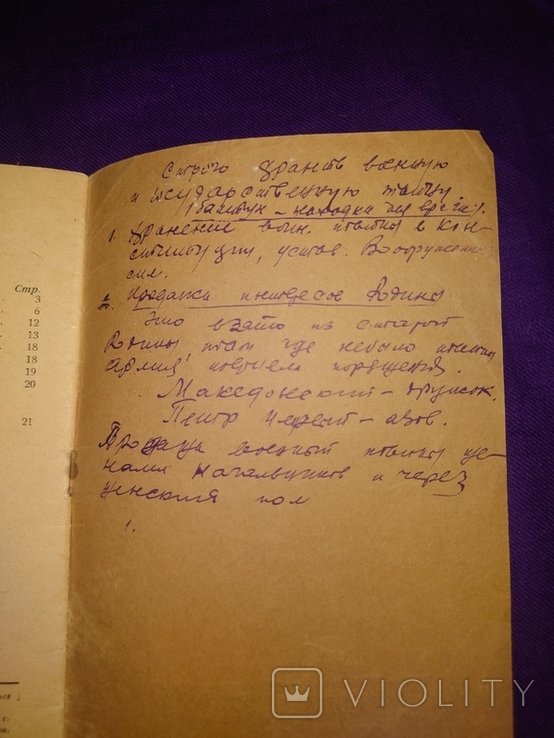 Стр.
3
6
12
13
18
18
19
20
21
Строго хранить военную
и государственную тайну
(болтун – находка для врага).
1. Хранение воен. тайны в кон-
ституции, устав. Вооруженных
сил.
2. Продажа интересов Родины
Это взято из старой
Родины, там где небыло тайны
армия,
Македонский –
Петр Первый – азов.
Продажа военной тайны же-
нами начальников и через
женский пол
1.
VIOLITY